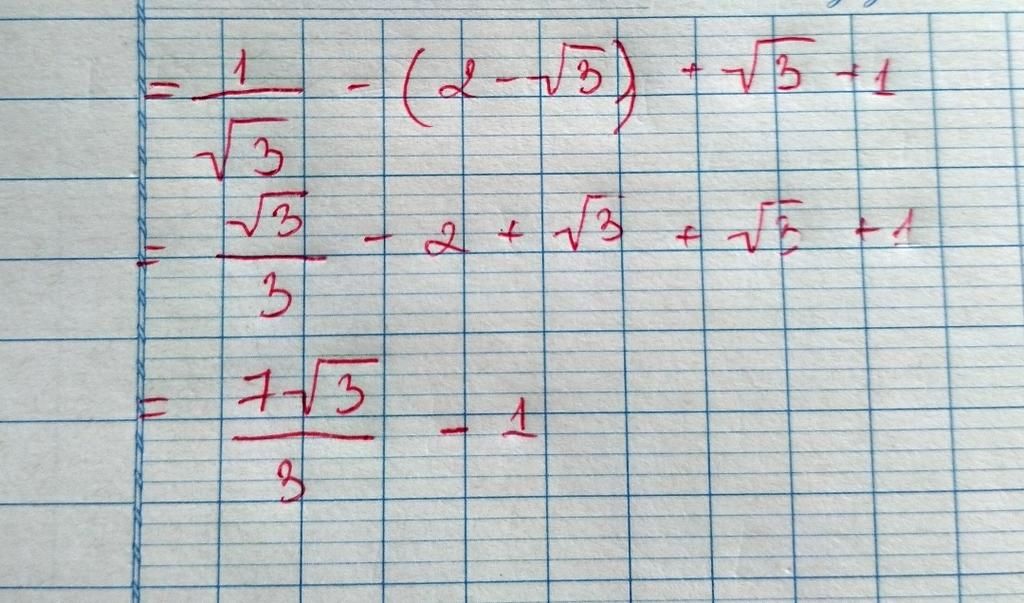 = 1/√3 - (2 - √3) + √3 + 1
= √3/3 - 2 + √3 + √3 + 1
= 7√3/3 - 1